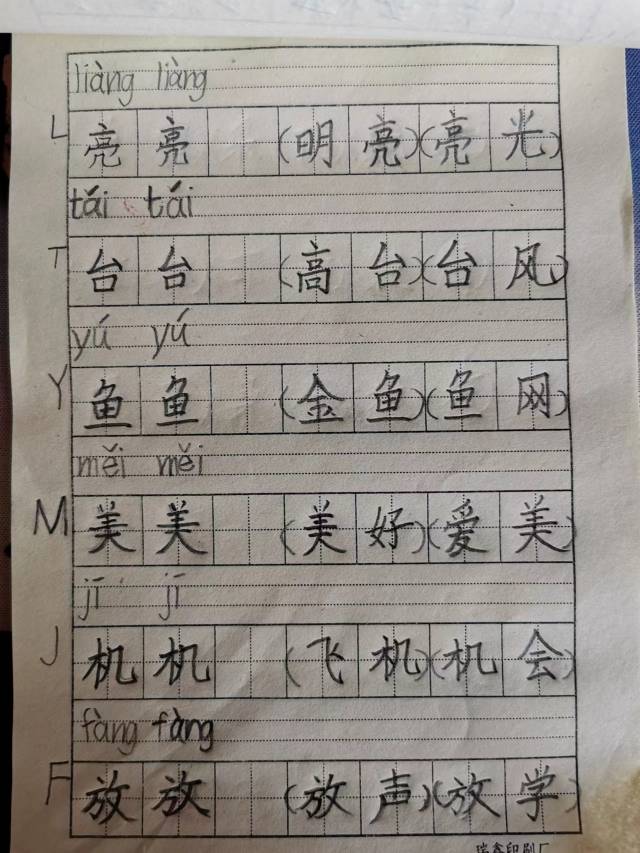 liàng liàng
L 亮 亮 (明 亮)(亮 光)
tái tái
T 台 台 (高 台)(台 风)
yú yú
Y 鱼 鱼 (金 鱼)(鱼 网)
měi měi
M 美 美 (美 好)(爱 美)
jī jī
J 机 机 (飞 机)(机 会)
fàng fàng
F 放 放 (放 声)(放 学)
瑞鑫印刷厂